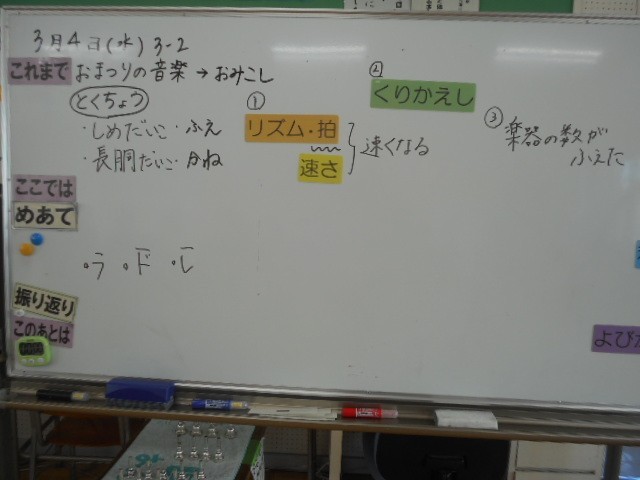 3月4日(水) 3-2
これまで おまつりの音楽 → おみこし
とくちょう
・しめだいこ・ふえ
・長胴だいこ・かね
①
リズム・拍
速さ
速くなる
②
くりかえし
③
楽器の数が
ふえた
ここでは
めあて
・ラ ・ド ・レ
振り返り
このあとは